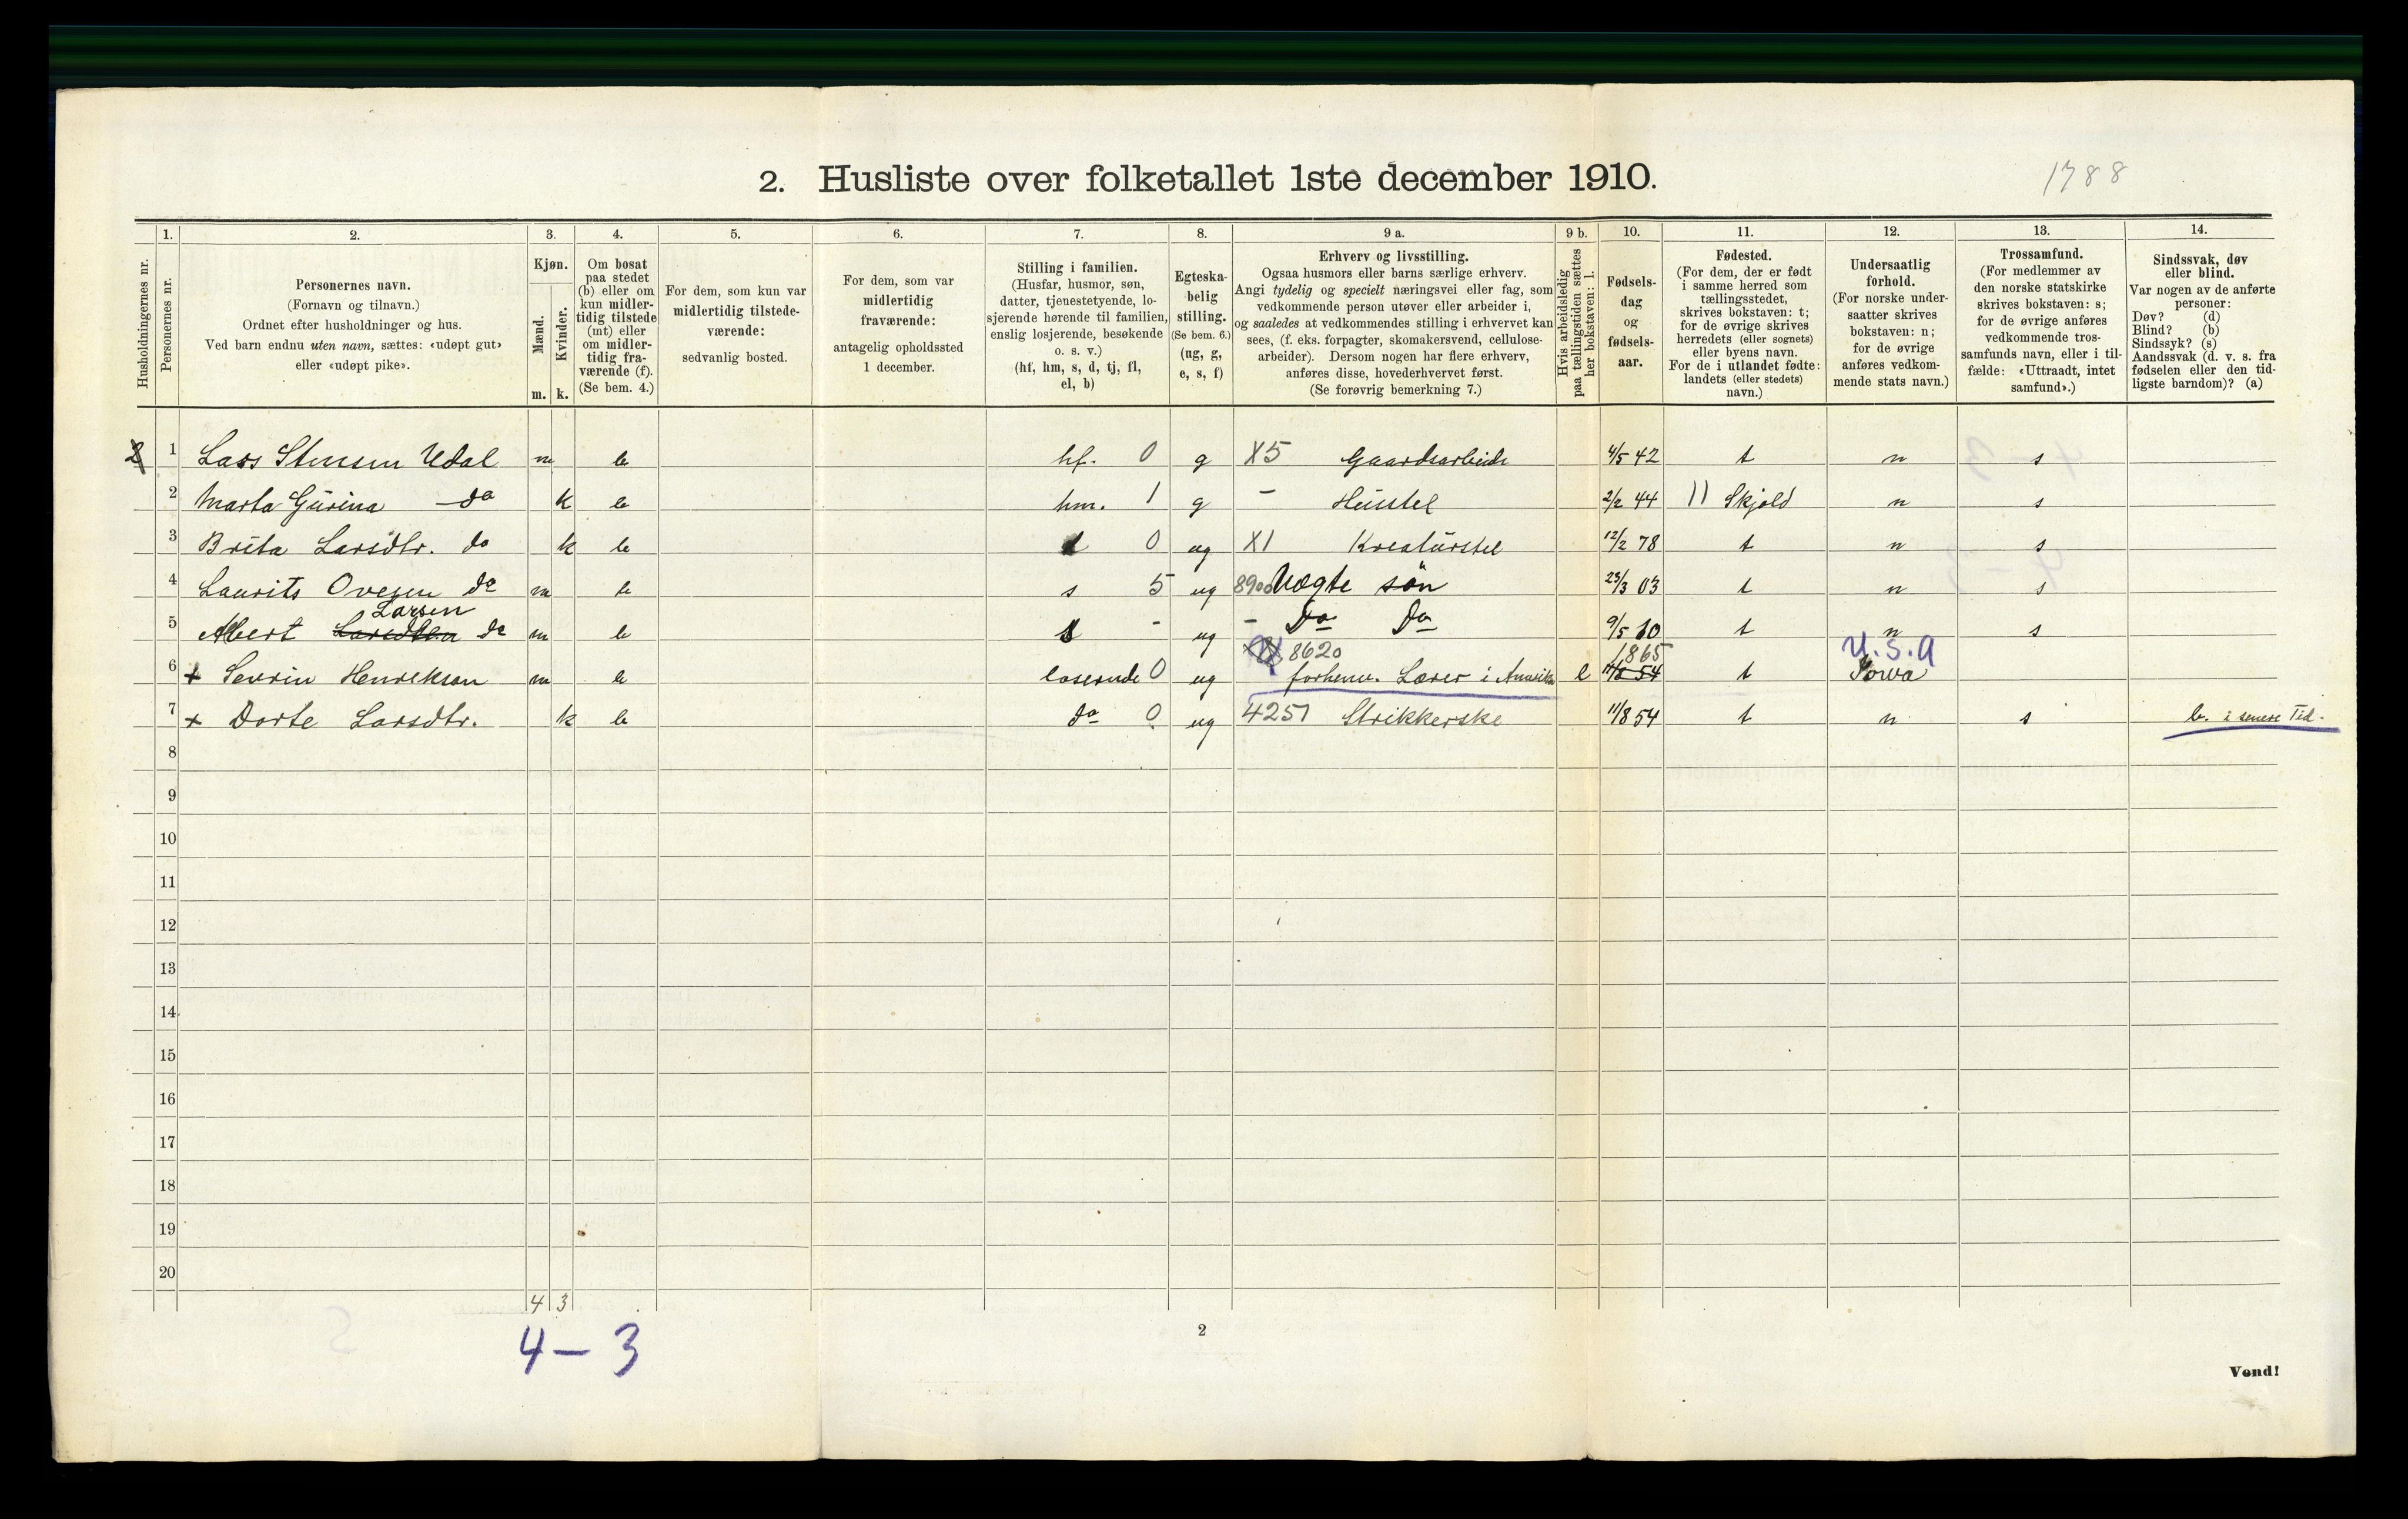 2. Husliste over folketallet 1ste december 1910.
1788
Husholdningernes nr.
1.
Personernes nr.
2.
Personernes navn.
(Fornavn og tilnavn.)
Ordnet efter husholdninger og hus.
Ved barn endnu uten navn, sættes: «udøpt gut»
eller «udøpt pike».
3.
Kjøn.
Mænd.
Kvinder.
m. k.
4.
Om bosat
paa stedet
(b) eller om
kun midler-
tidig tilstede
(mt) eller
om midler-
tidig fra-
værende (f).
(Se bem. 4.)
5.
For dem, som kun var
midlertidig tilstede-
værende:
sedvanlig bosted.
6.
For dem, som var
midlertidig
fraværende:
antagelig opholdssted
1 december.
7.
Stilling i familien.
(Husfar, husmor, søn,
datter, tjenestetyende, lo-
sjerende hørende til familien,
enslig losjerende, besøkende
o. s. v.)
(hf, hm, s, d, tj, fl,
el, b)
8.
Egteska-
belig
stilling.
(Se bem. 6.)
(ug, g,
e, s, f)
9 a.
Erhverv og livsstilling.
Ogsaa husmors eller barns særlige erhverv.
Angi tydelig og specielt næringsvei eller fag, som
vedkommende person utøver eller arbeider i,
og saaledes at vedkommendes stilling i erhvervet kan
sees, (f. eks. forpagter, skomakersvend, cellulose-
arbeider). Dersom nogen har flere erhverv,
anføres disse, hovederhvervet først.
(Se forøvrig bemerkning 7.)
9 b.
Hvis arbeidsledig
paa tællingstiden sættes
her bokstaven: l.
10.
Fødsels-
dag
og
fødsels-
aar.
11.
Fødested.
(For dem, der er født
i samme herred som
tællingsstedet,
skrives bokstaven: t;
for de øvrige skrives
herredets (eller sognets)
eller byens navn.
For de i utlandet fødte:
landets (eller stedets)
navn.)
12.
Undersaatlig
forhold.
(For norske under-
saatter skrives
bokstaven: n;
for de øvrige
anføres vedkom-
mende stats navn.)
13.
Trossamfund.
(For medlemmer av
den norske statskirke
skrives bokstaven: s;
for de øvrige anføres
vedkommende tros-
samfunds navn, eller i til-
fælde: «Uttraadt, intet
samfund».)
14.
Sindssvak, døv
eller blind.
Var nogen av de anførte
personer:
Døv? (d)
Blind? (b)
Sindssyk? (s)
Aandssvak (d. v. s. fra
fødselen eller den tid-
ligste barndom)? (a)
2 1 Lars Stensen Udal m b hf. 0 g X5 Gaardsarbeide 4/5 42 t n s
2 Marta Gurina do k b hm. 1 g - Husstel 2/2 44 11 Skjold n s
3 Brita Larsdtr. do k b d 0 ug X1 Kreaturstel 12/2 78 t n s
4 Laurits Ovesen do m b s 5 ug 8900 Uægte søn 23/3 03 t n s
Larsen
5 Albert Larsdtr. do m b s - ug - Do Do 9/5 10 t n s
8620 1865 U.S.A
6 + Severin Henrikson m b loserende 0 ug forhenv. Lærer i Amerika l 11/8 54 t Iowa
7 + Dorte Larsdtr. k b do 0 ug 4251 Strikkerske 11/8 54 t n s b. i senere Tid.
8
9
10
11
12
13
14
15
16
17
18
19
20
4 3
4 - 3
2
Vend!